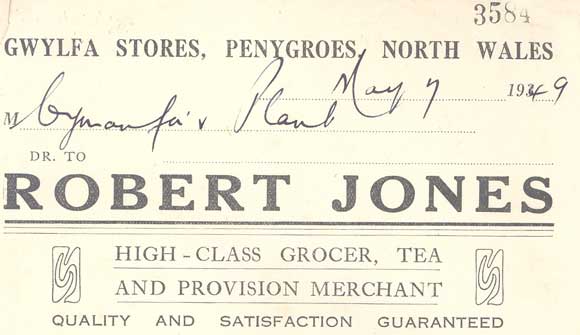 3584
GWYLFA STORES, PENYGROES, NORTH WALES
May 7 1949
M Cymanfa'r Plant
DR. TO
ROBERT JONES
HIGH-CLASS GROCER, TEA
AND PROVISION MERCHANT
QUALITY AND SATISFACTION GUARANTEED